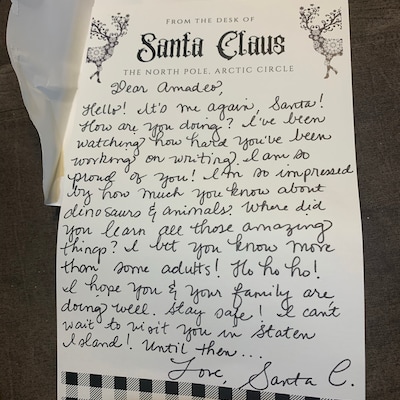 FROM THE DESK OF
Santa Claus
THE NORTH POLE, ARCTIC CIRCLE
Dear Amadeo,
Hello! It's me again, Santa!
How are you doing? I've been
watching how hard you've been
working on writing. I am so
proud of you! I'm so impressed
by how much you know about
dinosaurs & animals. Where did
you learn all those amazing
things? I bet you know more
than some adults! Ho ho ho!
I hope you & your family are
doing well. Stay safe! I can't
wait to visit you in Staten
Island! Until then...
Love, Santa C.